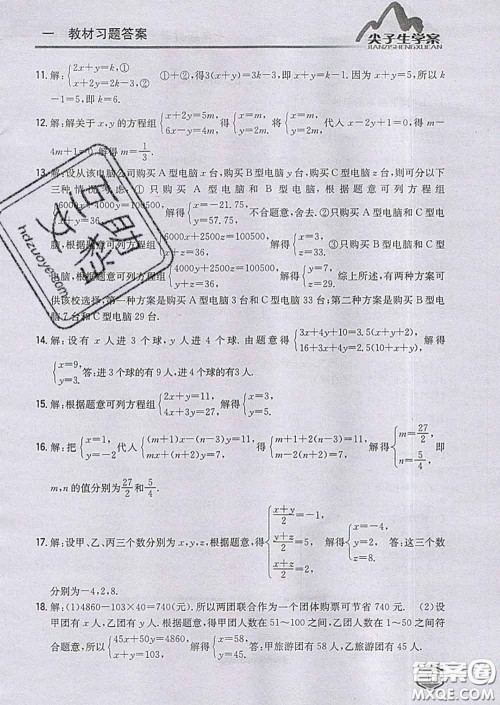 一 教材习题答案
尖子生学案
JIANZISHENGXUEAN
11.解:{2x+y=k,① x+2y=2k-3,② ①+②,得3(x+y)=3k-3,即x+y=k-1.因为x+y=5,所以k
-1=5,即k=6.
12.解:解关于x,y的方程组{x+2y=5m, 6x-y=4m, 得{x=m, y=2m. 将{x=m, y=2m, 代入x-2y+1=0,得m-
4m+1=0.解得m=1/3.
13.解:设从该电脑公司购买A型电脑x台,购买B型电脑y台,购买C型电脑z台,则可分以下
三种情况考虑:①只购买A型电脑和B型电脑,根据题意可列方程组
{6000x+4000y=100500, x+y=36, 解得{x=-21.75, y=57.75. 不合题意,舍去.②只购买A型电脑和C型
电脑,根据题意可列方程组{6000x+2500z=100500, x+z=36, 解得{x=3, z=33. ③只购买B型电脑和C型
电脑,根据题意可列方程组{4000y+2500z=100500, y+z=36, 解得{y=7, z=29. 综上所述,有两种方案可
供该校选择:第一种方案是购买A型电脑3台和C型电脑33台;第二种方案是购买B型
电脑7台和C型电脑29台.
14.解:设有x人进3个球,y人进4个球.由题意得{3x+4y+10=3.5(x+y+2), 16+3x+4y=2.5(10+x+y). 解得
{x=9, y=3. 答:进3个球的有9人,进4个球的有3人.
15.解:根据题意可列方程组{2x+y=11, 4x+3y=27. 解得{x=3, y=5.
16.解:把{x=1, y=-2 代入{(m+1)x-(n-3)y=11, mx+(n+2)y=7, 得{m+1+2(n-3)=11, m-2(n+2)=7, 解得{m=27/2, n=5/4, 即
m,n的值分别为27/2和5/4.
17.解:设甲、乙、丙三个数分别为x,y,z,根据题意,得{(x+y)/2=-1, (y+z)/2=5, (x+z)/2=2, 解得{x=-4, y=2, z=8. 答:这三个数
分别为-4,2,8.
18.解:(1)4860-103×40=740(元).所以两团联合作为一个团体购票可节省740元. (2)设
甲团有x人;乙团有y人,根据题意可得,甲团人数在51~100之间,乙团人数在1~50之间符
合题意,所以{45x+50y=4860, x+y=103, 解得{x=58, y=45. 答:甲旅游团有58人,乙旅游团有45人.
hdzuoye.com
答案圈
MXQE.COM